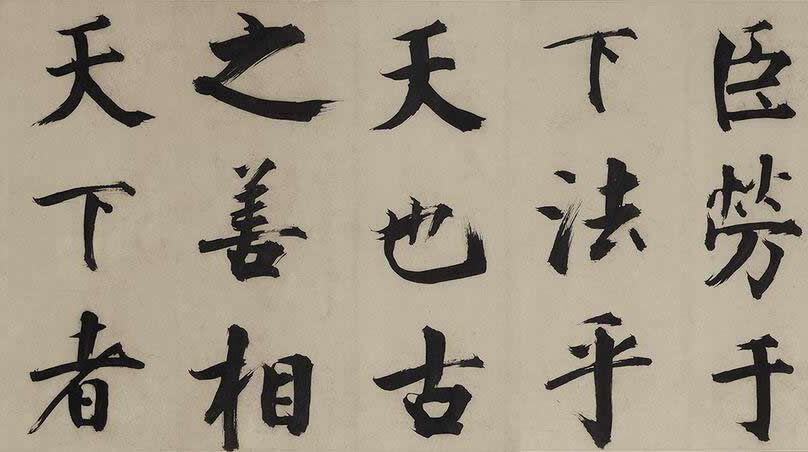 臣劳于
下法乎
天也古
之善相
天下者